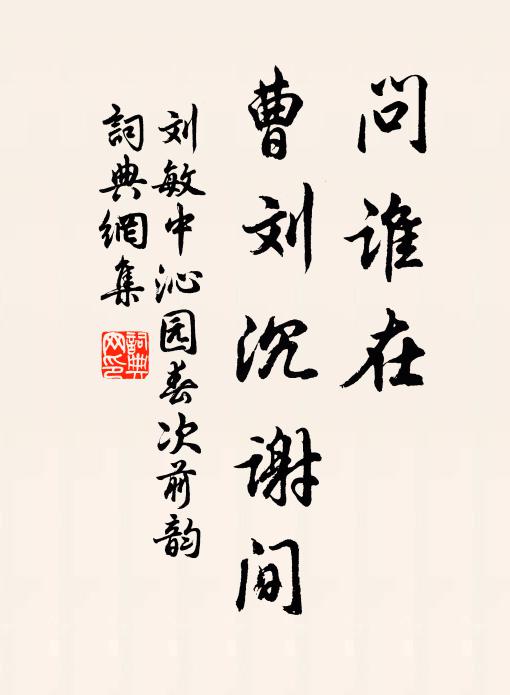 问谁在
曹刘沉谢间
刘敏中沁园春次前韵
詞典網集
詞典网印